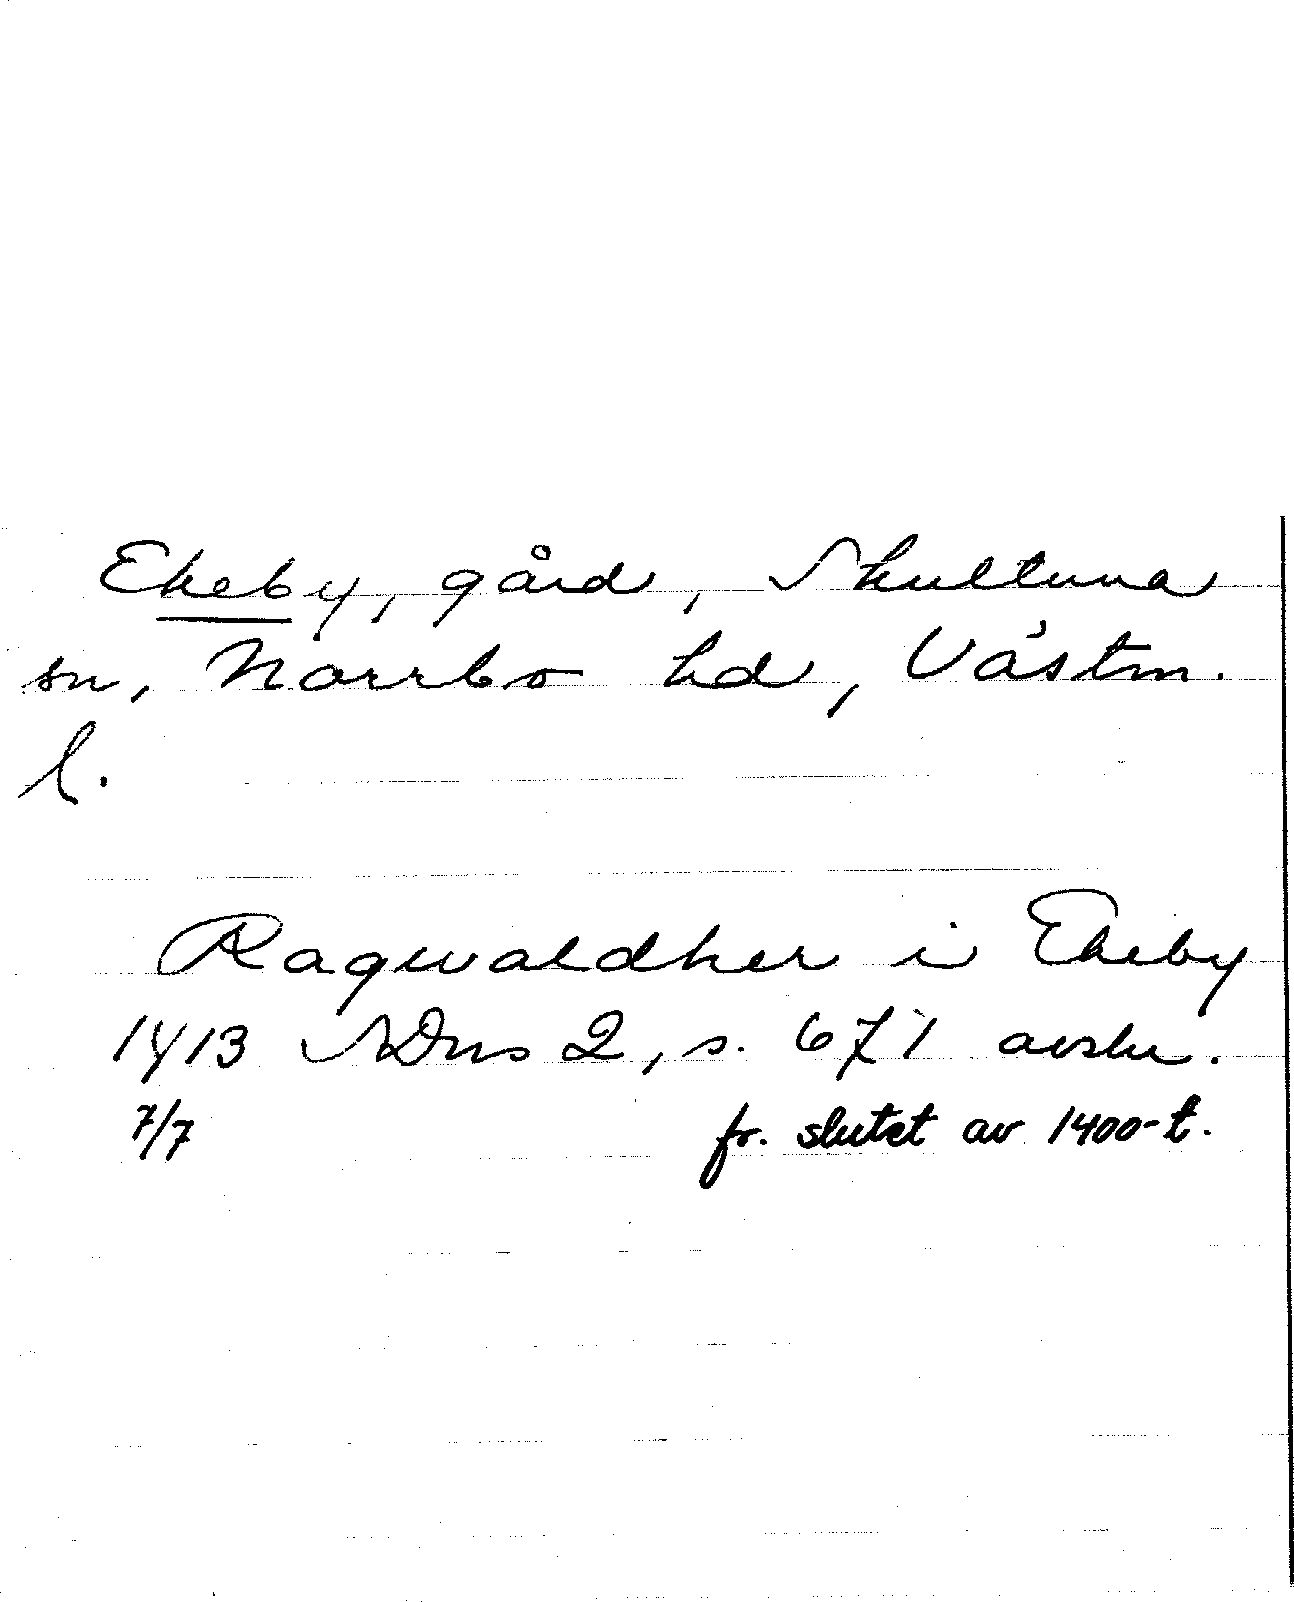 Ekeby, gård, Skultuna
sn, Norrbo hd, Västm.
l.
Ragwaldher i Ekeby
1413 SDns 2, s. 671 avskr.
7/7 fr. slutet av 1400-t.